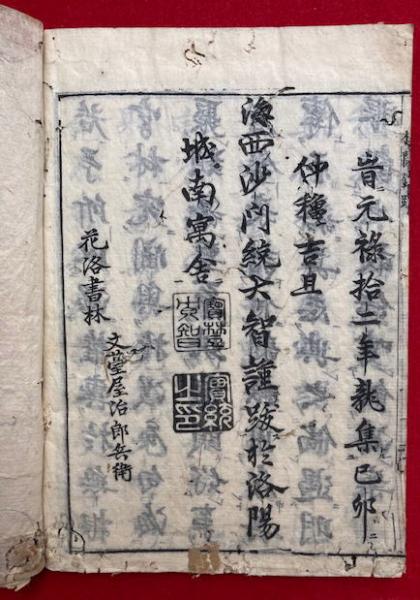 旹元祿拾二年龍集己卯
仲穐吉旦
海西沙門統大智謹跋於洛陽
城南寓舍
花洛書林
文臺屋治郎兵衛